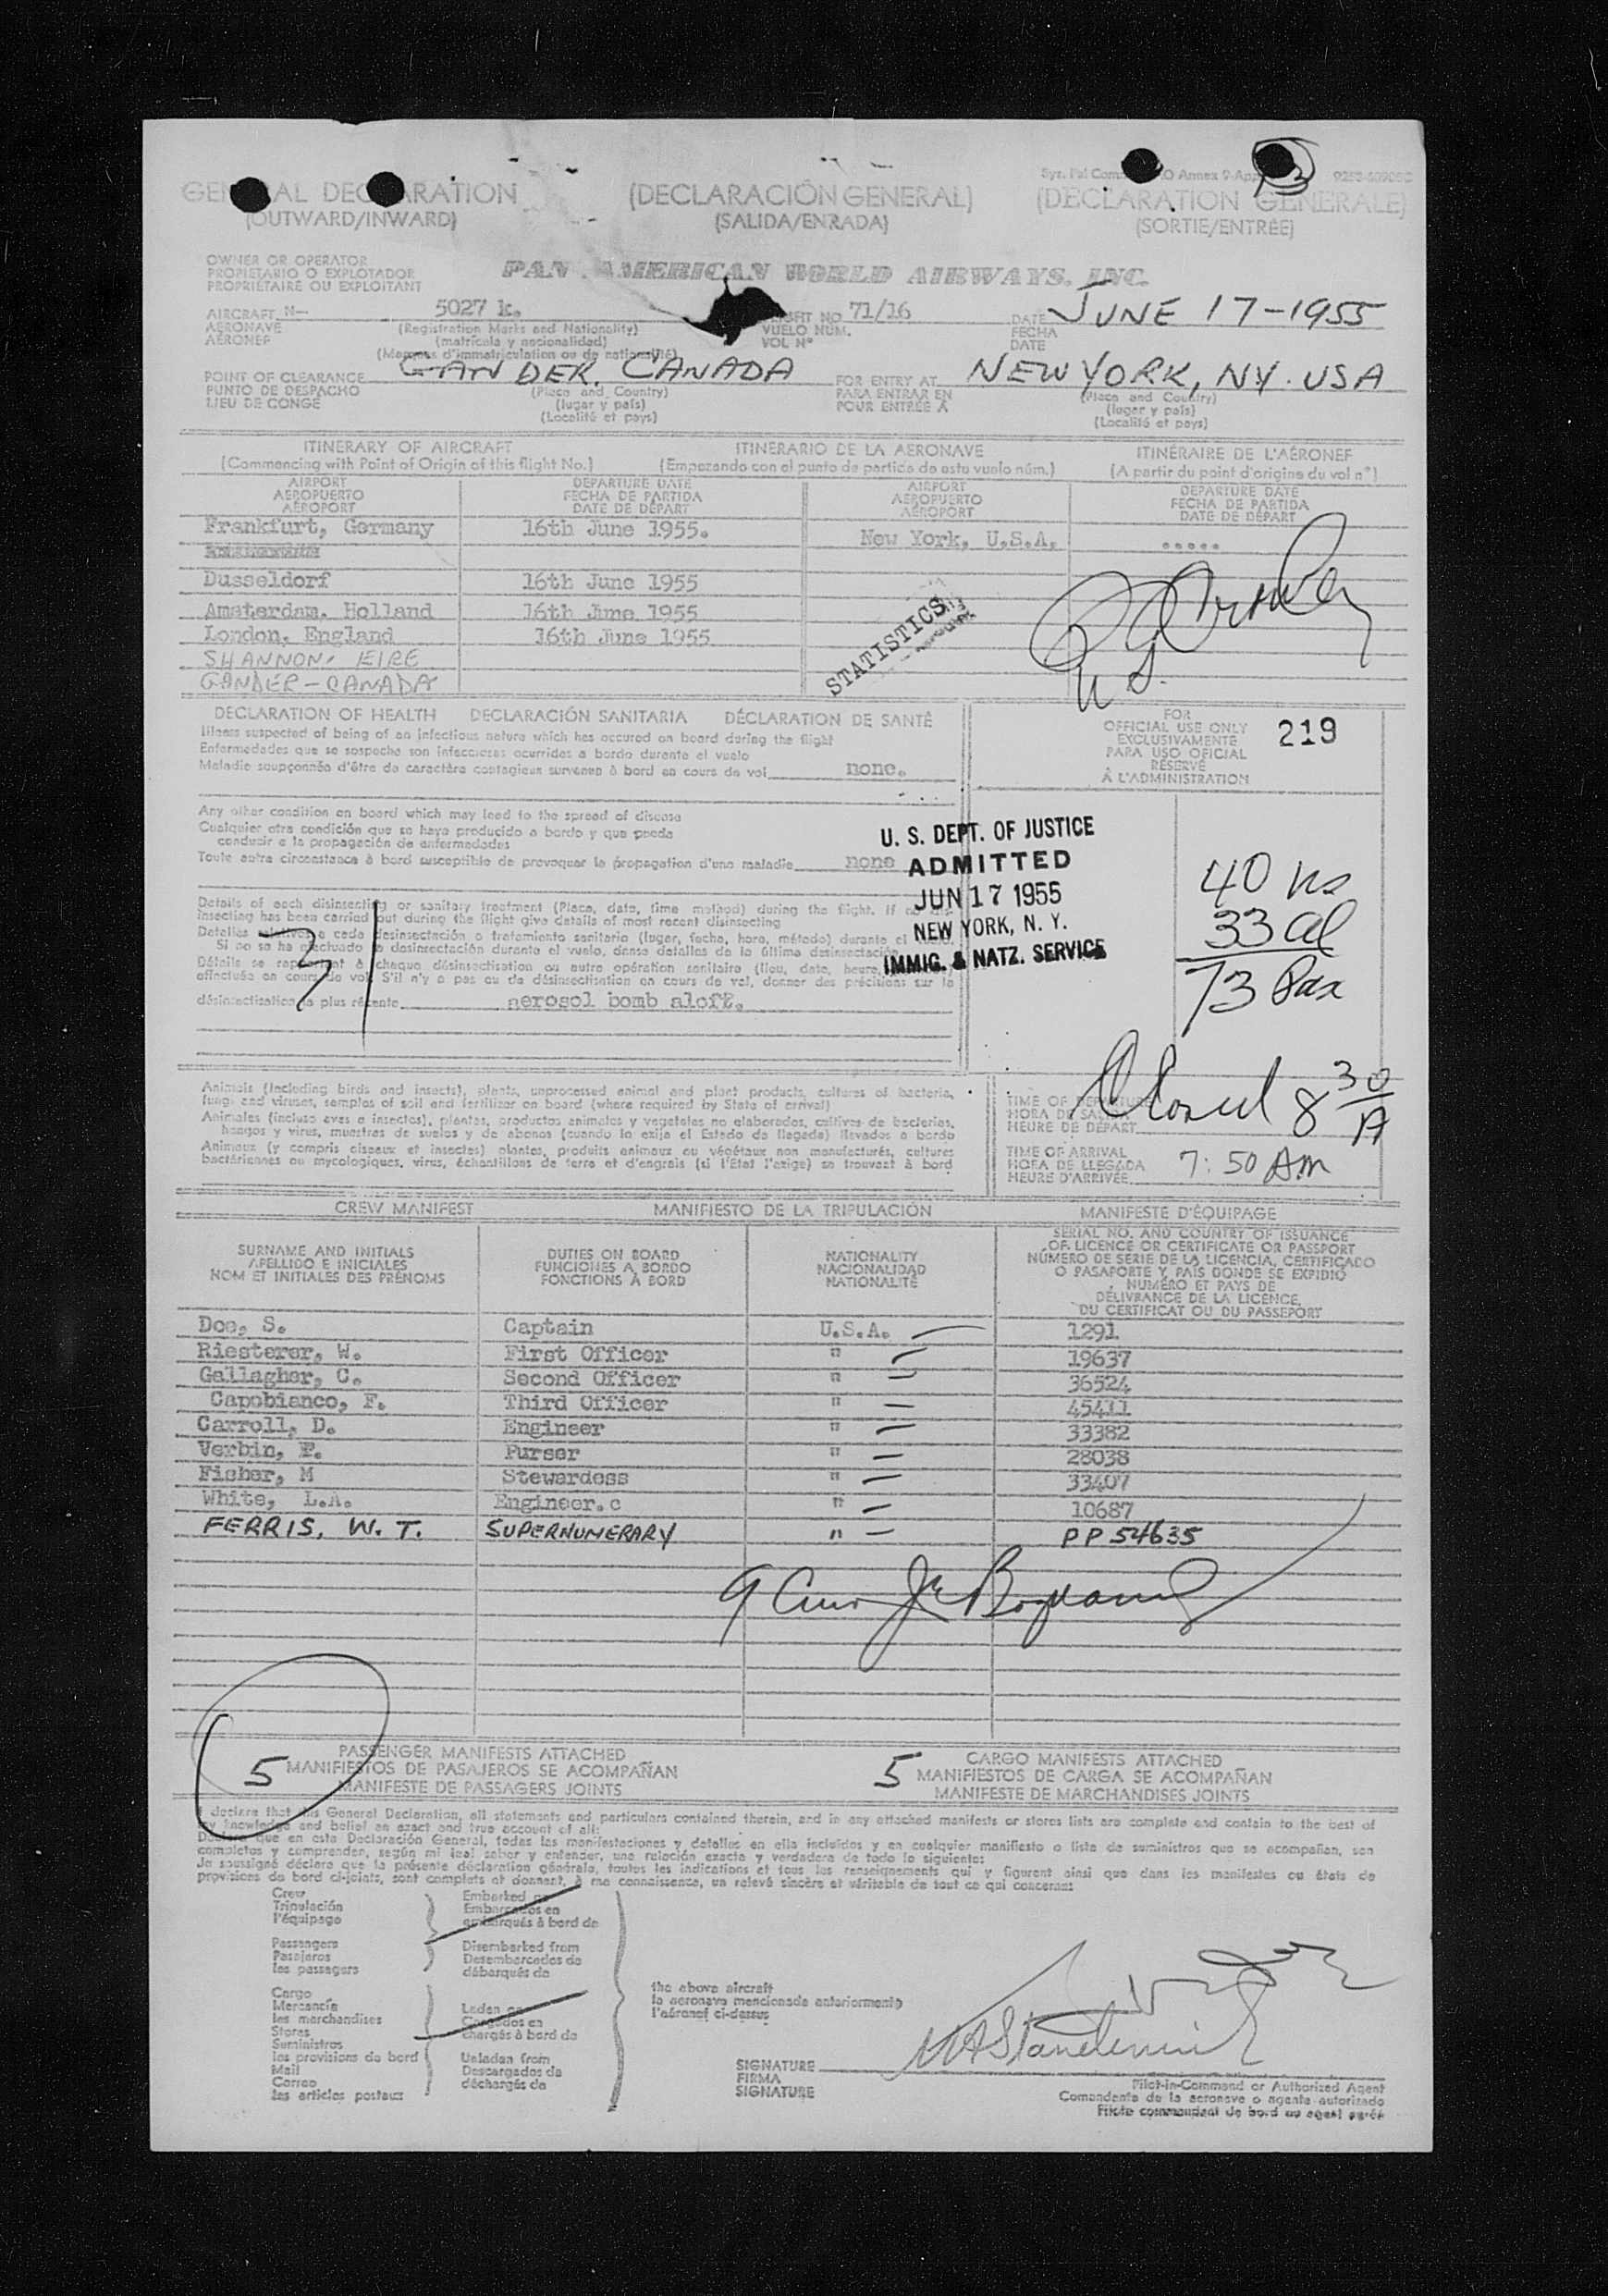 GENERAL DECLARATION
(OUTWARD/INWARD)
(DECLARACIÓN GENERAL)
(SALIDA/ENRADA)
(DECLARATION GENERALE)
(SORTIE/ENTRÉE)
OWNER OR OPERATOR
PROPIETARIO O EXPLOTADOR
PROPRIÉTAIRE OU EXPLOITANT
PAN AMERICAN WORLD AIRWAYS, INC.
AIRCRAFT N— 5027 k.
AERONAVE
AÉRONEF
(Registration Marks and Nationality)
(matrícula y nacionalidad)
(Marques d'immatriculation ou de nationalité)
FLIGHT NO. 71/16
VUELO NÚM.
VOL Nº
DATE JUNE 17-1955
FECHA
DATE
POINT OF CLEARANCE GANDER, CANADA
PUNTO DE DESPACHO
LIEU DE CONGÉ
(Place and Country)
(lugar y país)
(Localité et pays)
FOR ENTRY AT NEW YORK, N.Y. USA
PARA ENTRAR EN
POUR ENTRÉE A
(Place and Country)
(lugar y país)
(Localité et pays)
ITINERARY OF AIRCRAFT
(Commencing with Point of Origin of this flight No.)
ITINERARIO DE LA AERONAVE
(Empezando con el punto de partida de este vuelo núm.)
ITINÉRAIRE DE L'AÉRONEF
(A partir du point d'origine du vol nº)
AIRPORT DEPARTURE DATE AIRPORT DEPARTURE DATE
AEROPUERTO FECHA DE PARTIDA AEROPUERTO FECHA DE PARTIDA
AÉROPORT DATE DE DÉPART AÉROPORT DATE DE DÉPART
Frankfurt, Germany 16th June 1955. New York, U.S.A. .....
Dusseldorf 16th June 1955
Amsterdam, Holland 16th June 1955
London, England 16th June 1955
SHANNON, EIRE
GANDER-CANADA
STATISTICS
DECLARATION OF HEALTH DECLARACIÓN SANITARIA DÉCLARATION DE SANTÉ
Illness suspected of being of an infectious nature which has occured on board during the flight
Enfermedades que se sospeche son infecciosas ocurridas a bordo durante el vuelo
Maladie soupçonnée d'être de caractère contagieux survenue à bord en cours de vol none.
FOR
OFFICIAL USE ONLY
EXCLUSIVAMENTE
PARA USO OFICIAL
RÉSERVÉ
À L'ADMINISTRATION
219
Any other condition on board which may lead to the spread of disease
Cualquier otra condición que se haya producido a bordo y que pueda
conducir a la propagación de enfermedades
Toute autre circonstance à bord susceptible de provoquer la propagation d'une maladie none
U. S. DEPT. OF JUSTICE
ADMITTED
JUN 17 1955
NEW YORK, N. Y.
IMMIG. & NATZ. SERVICE
40 ns
33 al
73 Pax
Details of each disinsecting or sanitary treatment (Place, date, time method) during the flight. If no
insecting has been carried out during the flight give details of most recent disinsecting
Detalles relativos a cada desinsectación o tratamiento sanitario (lugar, fecha, hora, método) durante el
Si no se ha efectuado la desinsectación durante el vuelo, dense detalles de la última desinsectación
Détails se rapportant à chaque désinsectisation ou autre opération sanitaire (lieu, date, heure,
effectuée en cours de vol. S'il n'y a pas eu de désinsectisation en cours de vol, donner des précisions sur la
désinsectisation la plus récente aerosol bomb aloft.
Animals (including birds and insects), plants, unprocessed animal and plant products, cultures of bacteria,
fungi and viruses, samples of soil and fertilizer on board (where required by State of arrival)
Animales (incluso aves e insectos), plantas, productos animales y vegetales no elaborados, cultivos de bacterias,
hongos y virus, muestras de suelos y de abonos (cuando lo exija el Estado de llegada) llevados a bordo
Animaux (y compris oiseaux et insectes) plantes, produits animaux ou végétaux non manufacturés, cultures
bactériennes ou mycologiques, virus, échantillons de terre et d'engrais (si l'État l'exige) se trouvant à bord
TIME OF DEPARTURE
HORA DE SALIDA
HEURE DE DÉPART
Closed 8 30 A
TIME OF ARRIVAL
HORA DE LLEGADA
HEURE D'ARRIVÉE 7:50 Am
CREW MANIFEST MANIFIESTO DE LA TRIPULACIÓN MANIFESTE D'ÉQUIPAGE
SURNAME AND INITIALS
APELLIDO E INICIALES
NOM ET INITIALES DES PRÉNOMS
DUTIES ON BOARD
FUNCIONES A BORDO
FONCTIONS À BORD
NATIONALITY
NACIONALIDAD
NATIONALITÉ
SERIAL NO. AND COUNTRY OF ISSUANCE
OF LICENCE OR CERTIFICATE OR PASSPORT
NÚMERO DE SERIE DE LA LICENCIA, CERTIFICADO
O PASAPORTE Y PAÍS DONDE SE EXPIDIÓ
NUMÉRO ET PAYS DE
DÉLIVRANCE DE LA LICENCE,
DU CERTIFICAT OU DU PASSEPORT
Doe, S. Captain U.S.A. 1291
Riesterer, W. First Officer " 19637
Gallagher, C. Second Officer " 36524
Capobianco, F. Third Officer " 45411
Carroll, D. Engineer " 33382
Verbin, F. Purser " 28038
Fisher, M Stewardess " 33407
White, L.A. Engineer.c " 10687
FERRIS, W. T. SUPERNUMERARY " PP 54635
5
PASSENGER MANIFESTS ATTACHED
MANIFIESTOS DE PASAJEROS SE ACOMPAÑAN
MANIFESTE DE PASSAGERS JOINTS
5
CARGO MANIFESTS ATTACHED
MANIFIESTOS DE CARGA SE ACOMPAÑAN
MANIFESTE DE MARCHANDISES JOINTS
I declare that this General Declaration, all statements and particulars contained therein, and in any attached manifests or stores lists are complete and contain to the best of
my knowledge and belief an exact and true account of all:
Declaro que en esta Declaración General, todas las manifestaciones y detalles en ella incluidos y en cualquier manifiesto o lista de suministros que se acompañan, son
completos y comprenden, según mi leal saber y entender, una relación exacta y verdadera de todo lo siguiente:
Je soussigné déclare que la présente déclaration générale, toutes les indications et tous les renseignements qui y figurent ainsi que dans les manifestes ou états de
provisions de bord ci-joints, sont complets et donnent, à ma connaissance, un relevé sincère et véritable de tout ce qui concerne:
Crew
Tripulación
l'équipage
Passengers
Pasajeros
les passagers
Embarked on
Embarcados en
embarqués à bord de
Disembarked from
Desembarcados de
débarqués de
Cargo
Mercancía
les marchandises
Stores
Suministros
les provisions de bord
Mail
Correo
les articles postaux
Laden on
Cargados en
chargés à bord de
Unladen from
Descargados de
déchargés de
the above aircraft
la aeronave mencionada anteriormente
l'aéronef ci-dessus
SIGNATURE
FIRMA
SIGNATURE
Pilot-in-Command or Authorized Agent
Comandante de la aeronave o agente autorizado
Pilote commandant de bord ou agent agréé